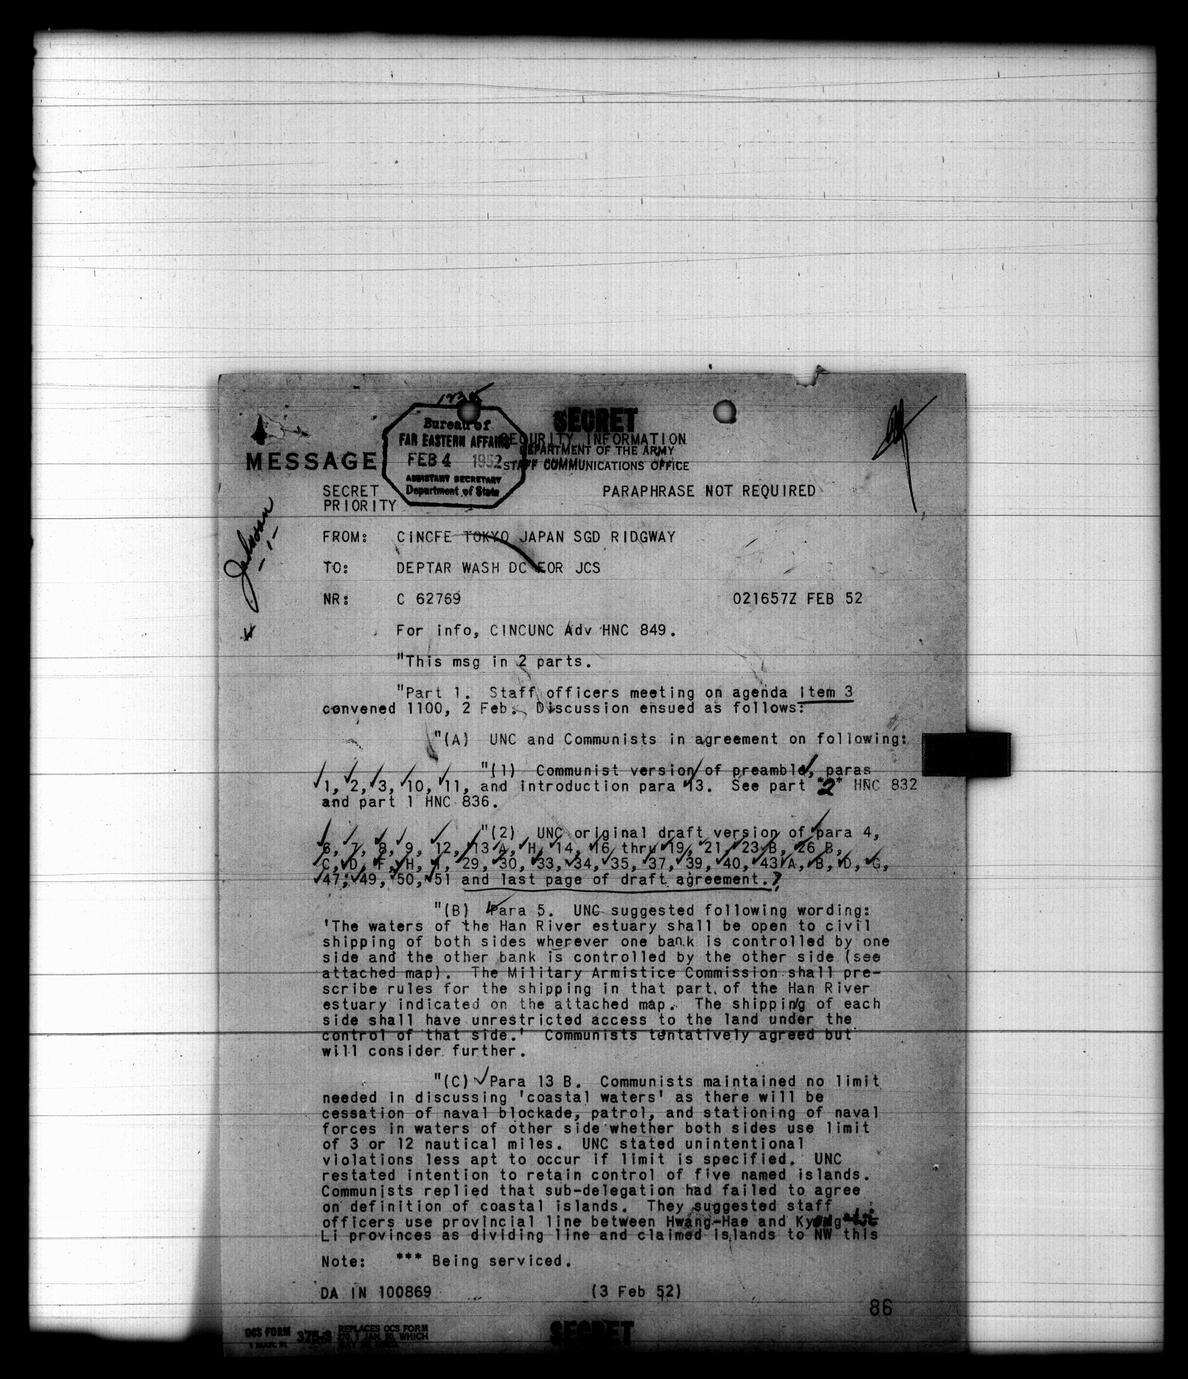 1735
SECRET
Bureau of
FAR EASTERN AFFAIRS
SECURITY INFORMATION
DEPARTMENT OF THE ARMY
MESSAGE
FEB 4 1952
STAFF COMMUNICATIONS OFFICE
ASSISTANT SECRETARY
Department of State
SECRET PARAPHRASE NOT REQUIRED
PRIORITY
Johnson
-1-
FROM: CINCFE TOKYO JAPAN SGD RIDGWAY
TO: DEPTAR WASH DC FOR JCS
NR: C 62769 021657Z FEB 52
For info, CINCUNC Adv HNC 849.
"This msg in 2 parts.
"Part 1. Staff officers meeting on agenda Item 3
convened 1100, 2 Feb. Discussion ensued as follows:
"(A) UNC and Communists in agreement on following:
"(1) Communist version of preamble, paras
1, 2, 3, 10, 11, and introduction para 13. See part "2" HNC 832
and part 1 HNC 836.
"(2) UNC original draft version of para 4,
6, 7, 8, 9, 12, 13 A, H, 14, 16 thru 19, 21, 23 B, 26 B,
C, D, F, H, 29, 30, 33, 34, 35, 37, 39, 40, 43 A, B, D, G,
47, 49, 50, 51 and last page of draft agreement.?
"(B) Para 5. UNC suggested following wording:
'The waters of the Han River estuary shall be open to civil
shipping of both sides wherever one bank is controlled by one
side and the other bank is controlled by the other side (see
attached map). The Military Armistice Commission shall pre-
scribe rules for the shipping in that part of the Han River
estuary indicated on the attached map. The shipping of each
side shall have unrestricted access to the land under the
control of that side.' Communists tentatively agreed but
will consider further.
"(C) Para 13 B. Communists maintained no limit
needed in discussing 'coastal waters' as there will be
cessation of naval blockade, patrol, and stationing of naval
forces in waters of other side whether both sides use limit
of 3 or 12 nautical miles. UNC stated unintentional
violations less apt to occur if limit is specified. UNC
restated intention to retain control of five named islands.
Communists replied that sub-delegation had failed to agree
on definition of coastal islands. They suggested staff
officers use provincial line between Hwang-Hae and
Li provinces as dividing line and claimed islands to NW this
Note: *** Being serviced.
DA IN 100869 (3 Feb 52)
86
OCS FORM 375-3 REPLACES OCS FORM
SECRET